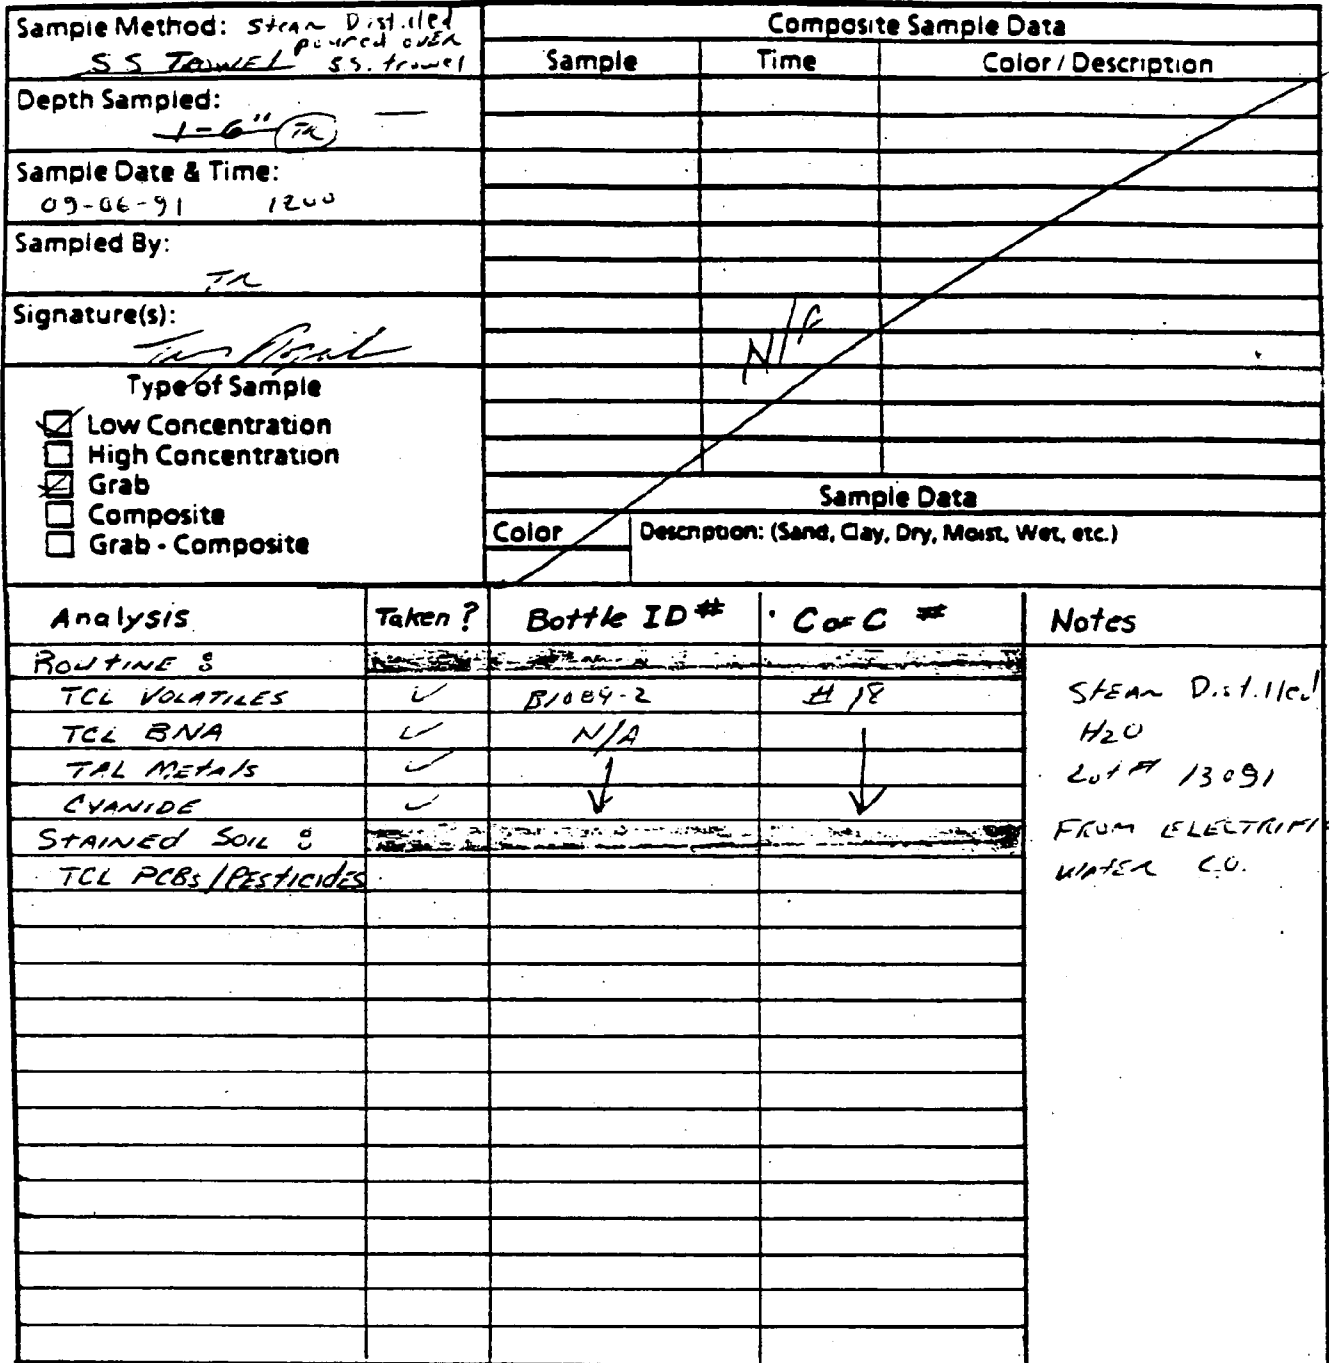 Sample Method: Steam Distilled
poured over
S S Trowel s.s. trowel
Depth Sampled:
1-6" TR —
Sample Date & Time:
09-06-91 1200
Sampled By:
TR
Signature(s):
Type of Sample
Low Concentration
High Concentration
Grab
Composite
Grab - Composite
Composite Sample Data
Sample Time Color / Description
N/A
Sample Data
Color Description: (Sand, Clay, Dry, Moist, Wet, etc.)
Analysis Taken? Bottle ID # C of C # Notes
ROUTINE :
TCL VOLATILES ✓ B1084-2 # 18
TCL BNA ✓ N/A
TAL Metals ✓
CYANIDE ✓
STAINED SOIL :
TCL PCBs/PESTICIDES
STEAM Distilled
H2O
Lot # 13091
FROM ELECTRIFI
WATER CO.